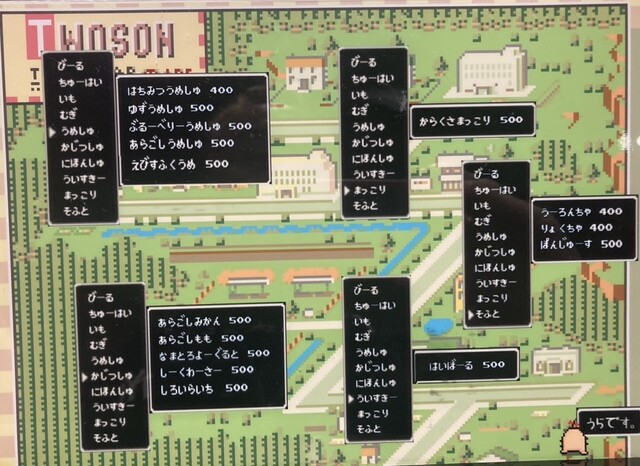 TWOSON
びーる
ちゅーはい
いも
むぎ
うめしゅ
かじつしゅ
にほんしゅ
ういすきー
まっこり
そふと
はちみつうめしゅ 400
ゆずうめしゅ 500
ぶるーべりーうめしゅ 500
あらごしうめしゅ 500
えびすふくうめ 500
びーる
ちゅーはい
いも
むぎ
うめしゅ
かじつしゅ
にほんしゅ
ういすきー
まっこり
そふと
からくさまっこり 500
びーる
ちゅーはい
いも
むぎ
うめしゅ
かじつしゅ
にほんしゅ
ういすきー
まっこり
そふと
うーろんちゃ 400
りょくちゃ 400
ぽんじゅーす 500
びーる
ちゅーはい
いも
むぎ
うめしゅ
かじつしゅ
にほんしゅ
ういすきー
まっこり
そふと
あらごしみかん 500
あらごしもも 500
なまとろよーぐると 500
しーくわーさー 500
しろいらいち 500
びーる
ちゅーはい
いも
むぎ
うめしゅ
かじつしゅ
にほんしゅ
ういすきー
まっこり
そふと
はいぼーる 500
うらです。